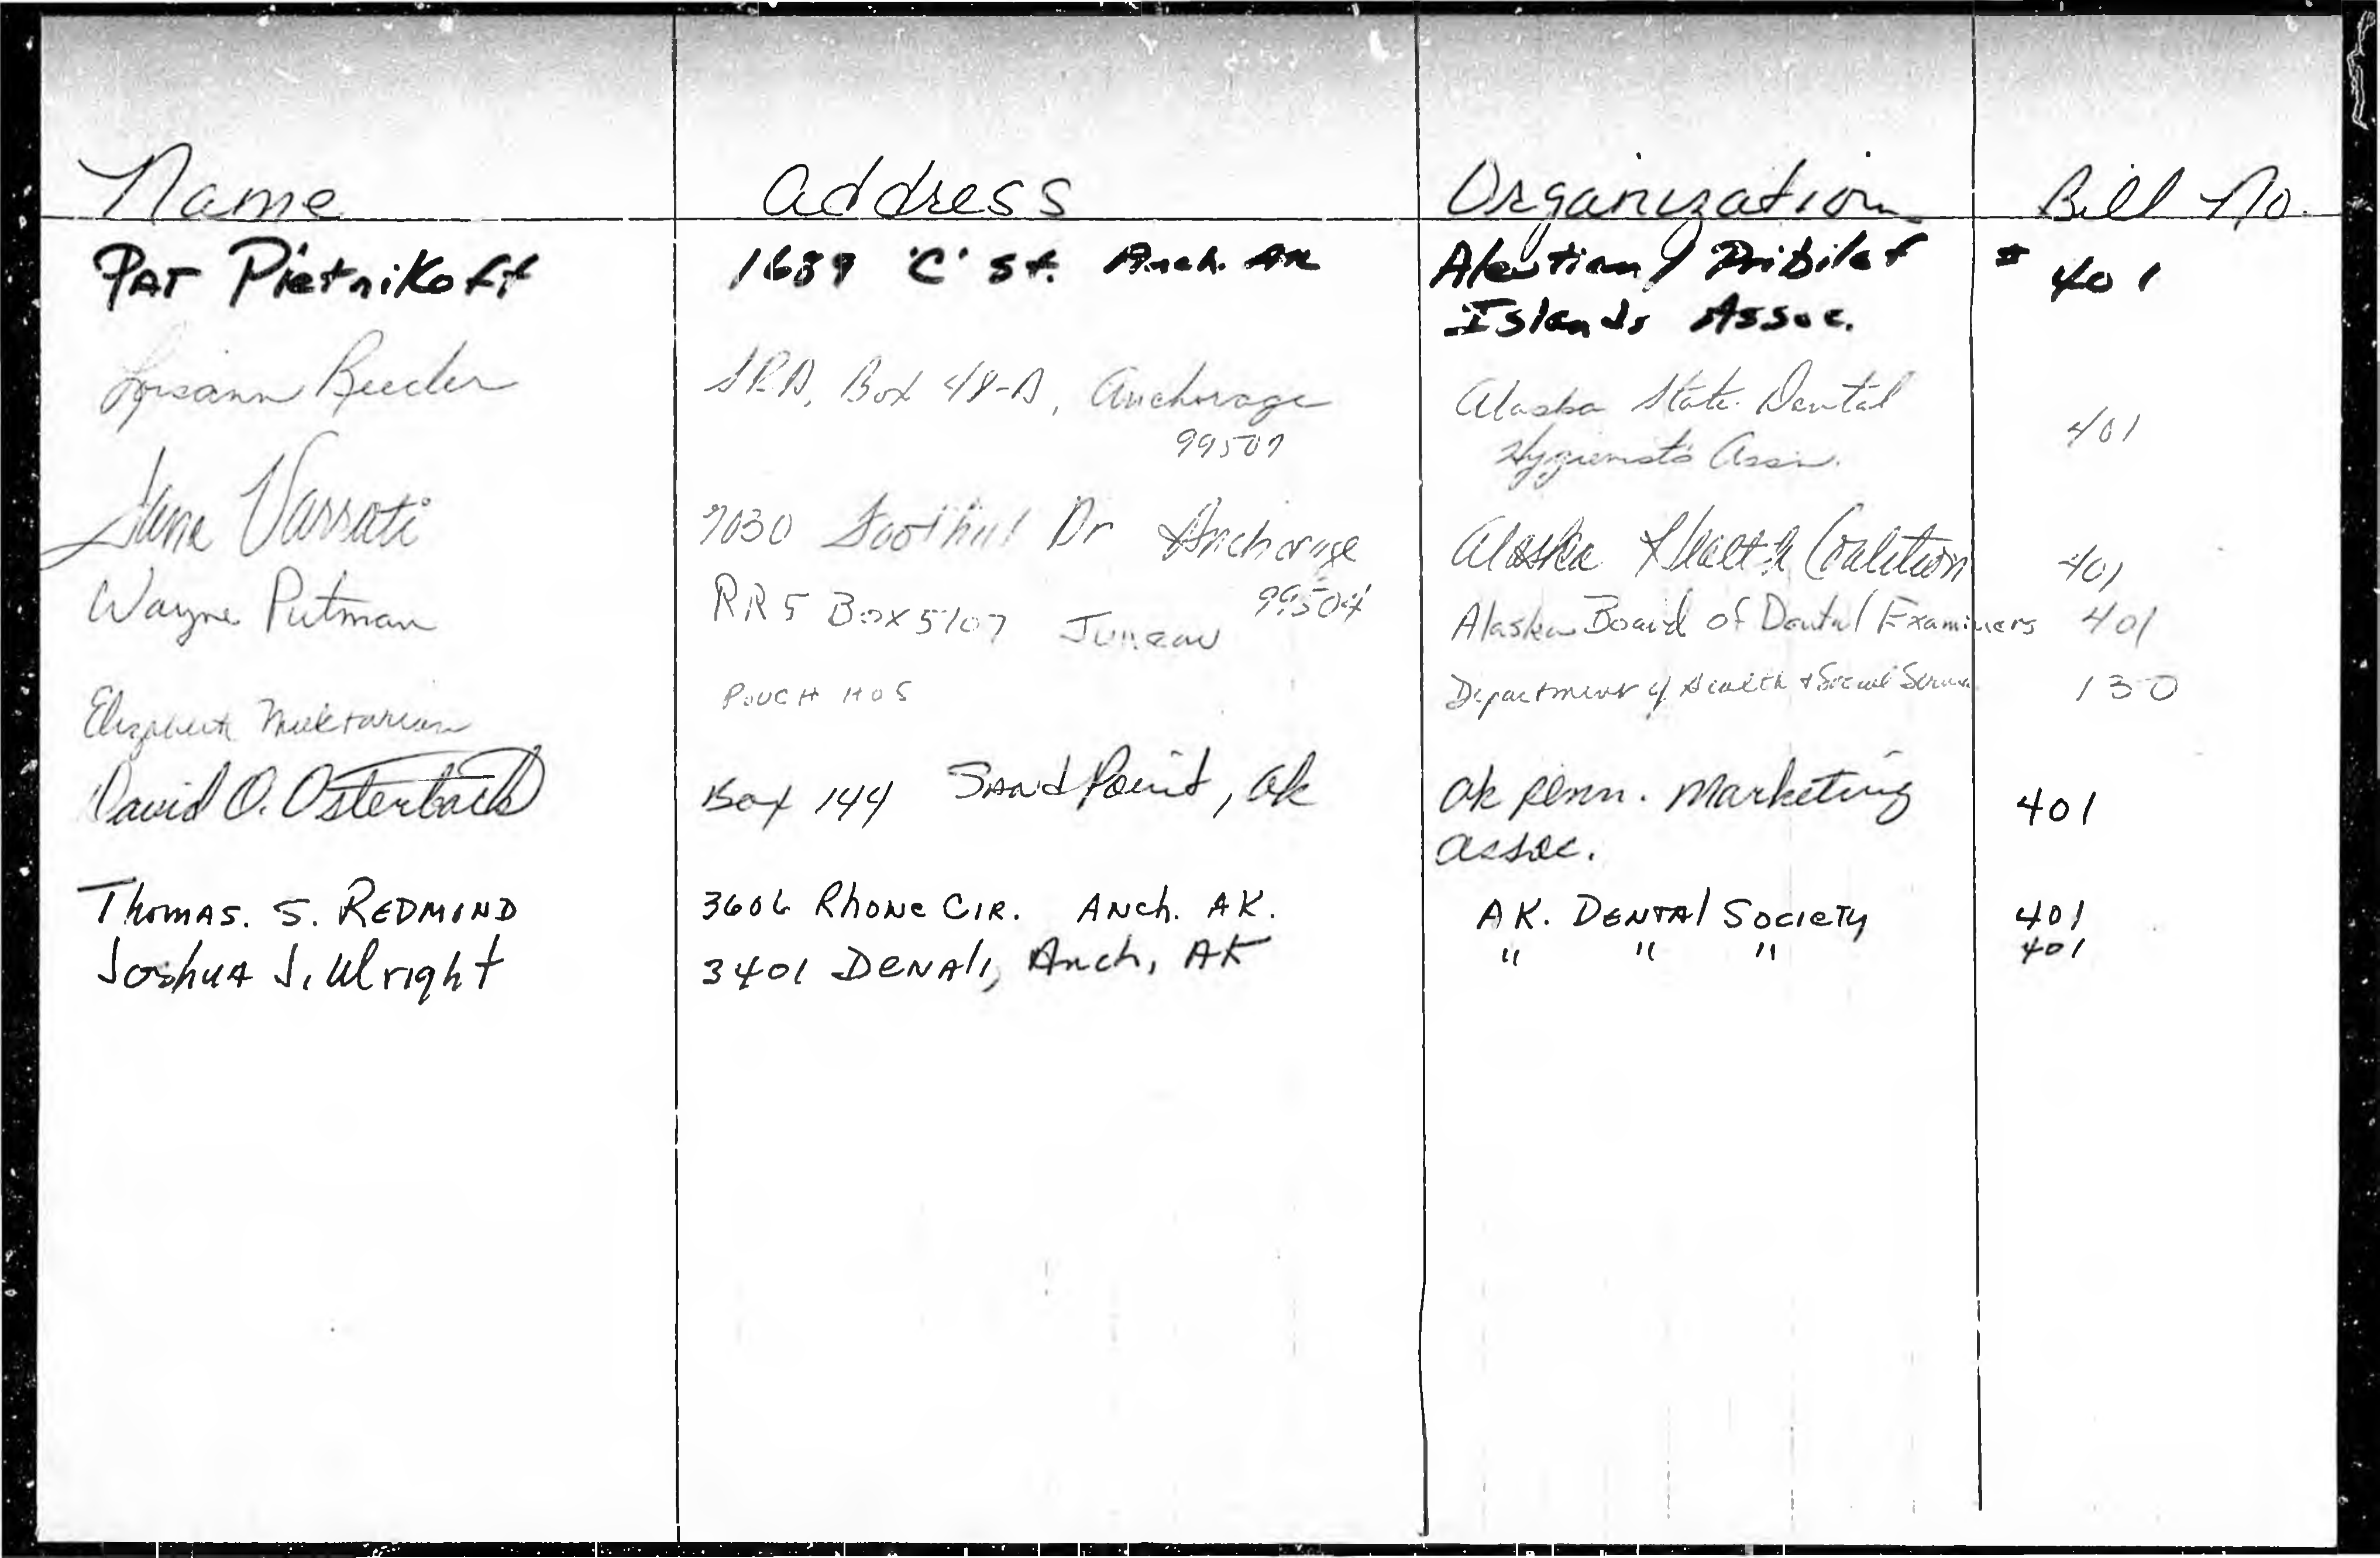 Name address Organization Bill No.
PAT Pietnikoff 1689 'C' St. Anch. AK Aleutian/Pribilof # 401
Islands Assoc.
Reeder SRA, Box 48-A, Anchorage Alaska State Dental 401
99507 Hygienists Assn.
Jane 7030 Foothill Dr Anchorage Alaska Health Coalition 401
99504
Wayne Putman RR5 Box 5107 Juneau Alaska Board of Dental Examiners 401
Elizabeth Muktarian POUCH H05 Department of Health & Social Services 130
David O. Osterback Box 144 Sand Point, Ak Ak Penn. Marketing 401
assoc.
Thomas. S. REDMOND 3606 Rhone CIR. ANch. AK. AK. DENTAl SocieTy 401
JoshuA J. Wright 3401 DENAli, Anch, AK " " " 401